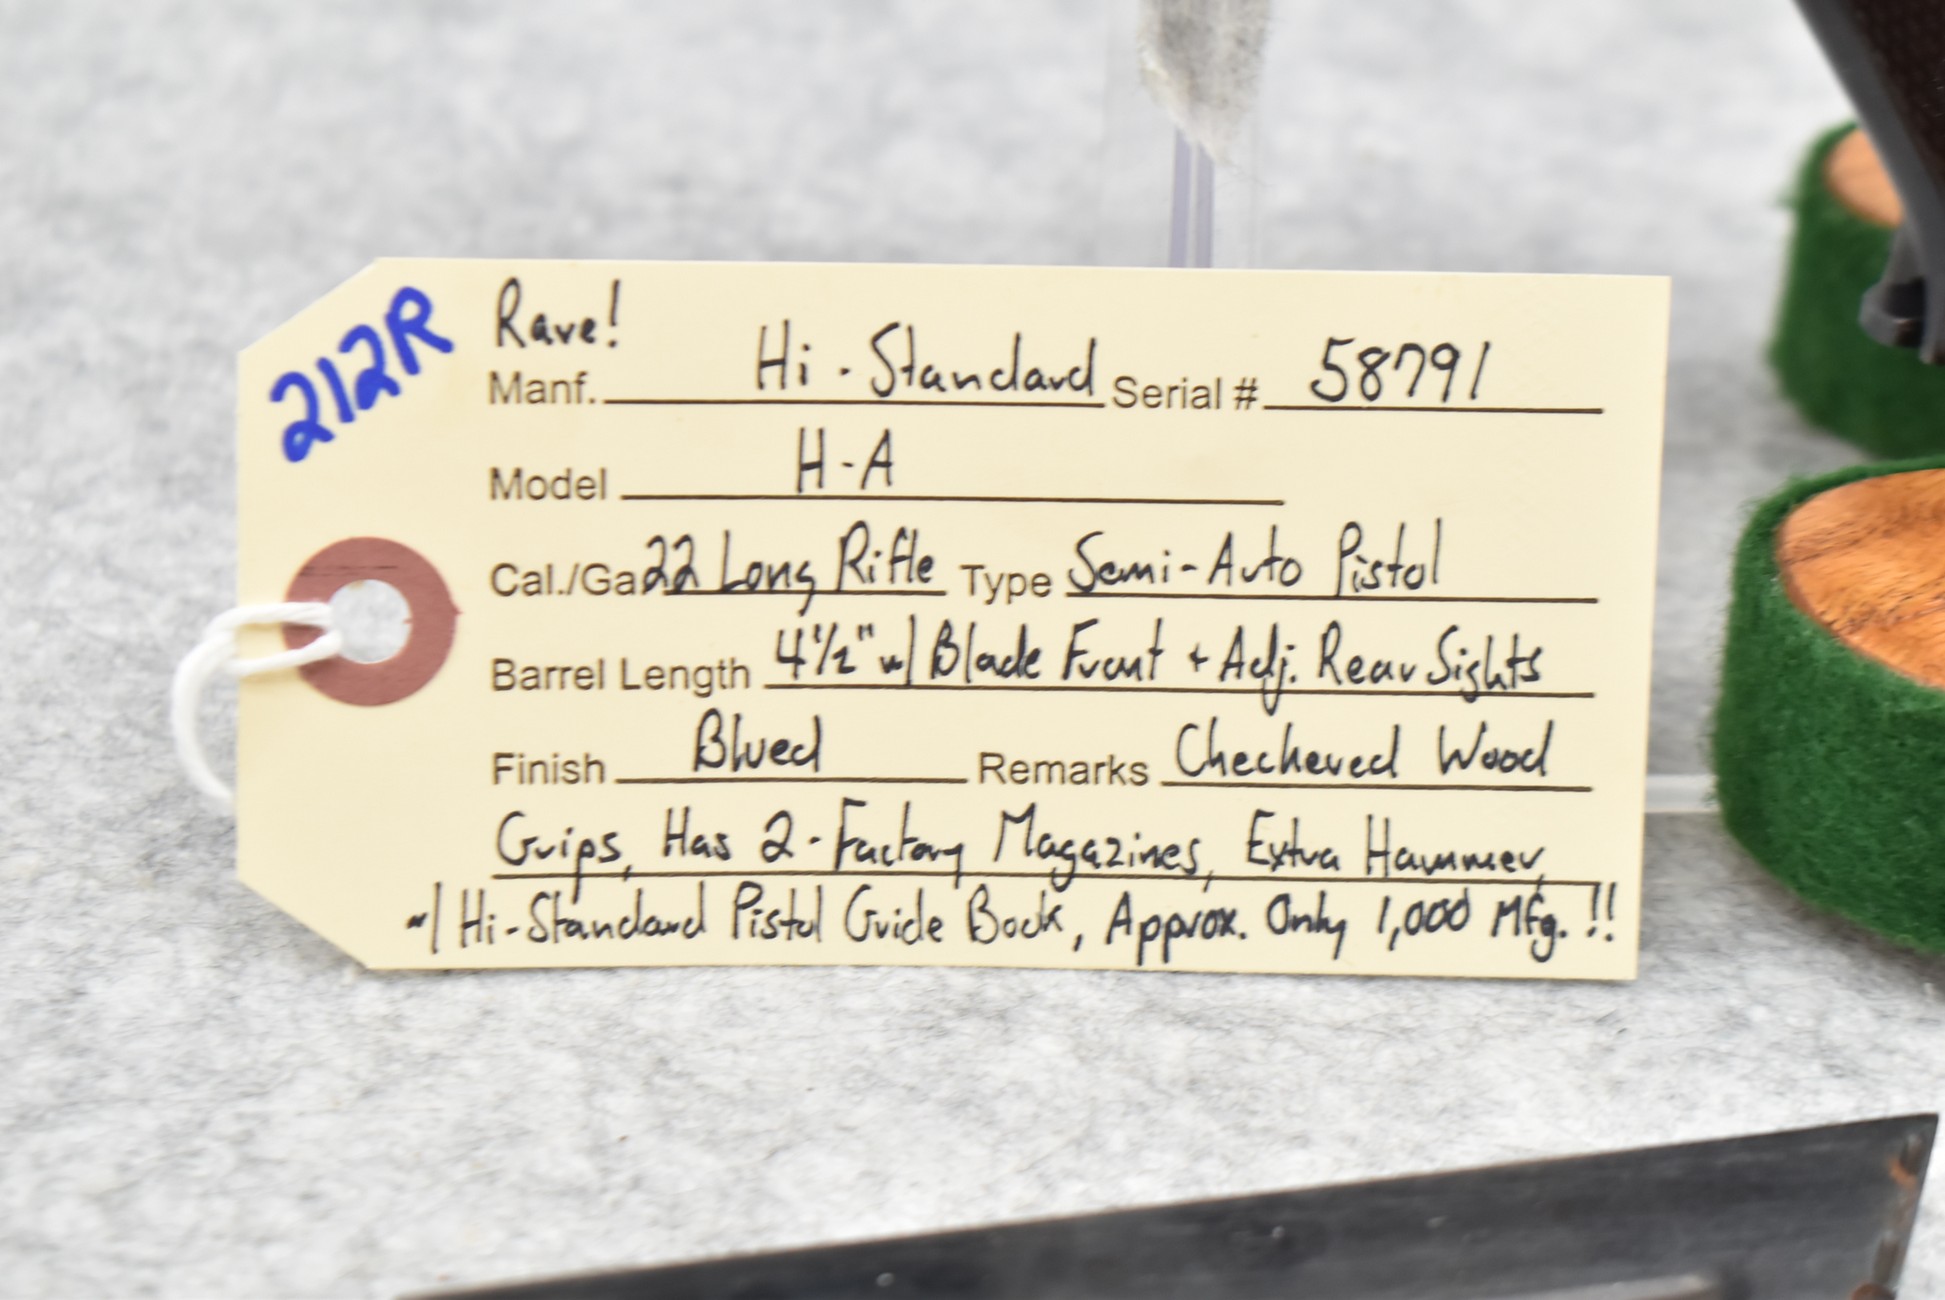 212R
Rare!
Manf. Hi-Standard Serial # 58791
Model H-A
Cal./Ga 22 Long Rifle Type Semi-Auto Pistol
Barrel Length 4½" w/ Blade Front + Adj. Rear Sights
Finish Blued Remarks Checkered Wood
Grips, Has 2-Factory Magazines, Extra Hammer,
w/ Hi-Standard Pistol Guide Book, Approx. Only 1,000 Mfg.!!